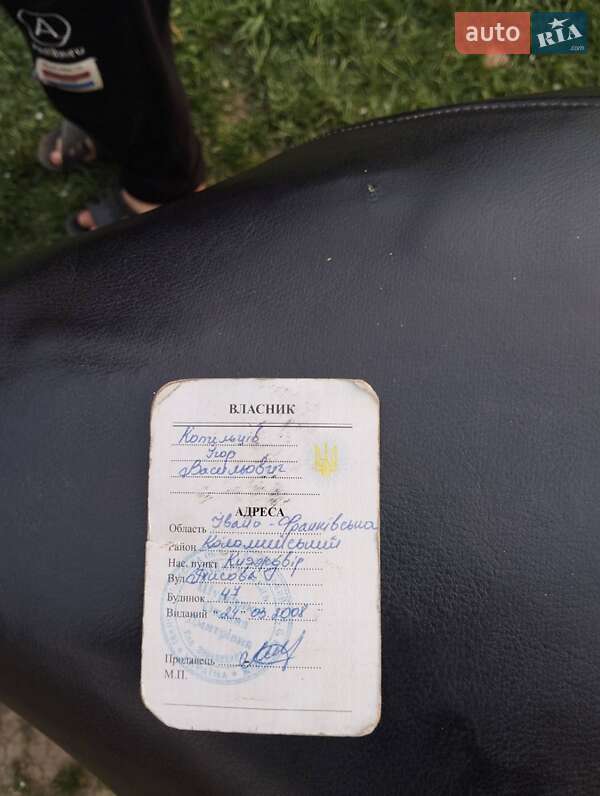 auto RIA.com
ВЛАСНИК
Копильців
Ігор
Васильович
АДРЕСА
Область Івано-Франківська
Район Коломийський
Нас. пункт
Вул.
Будинок 47
Виданий "24" 03.2008
Продавець
М.П.